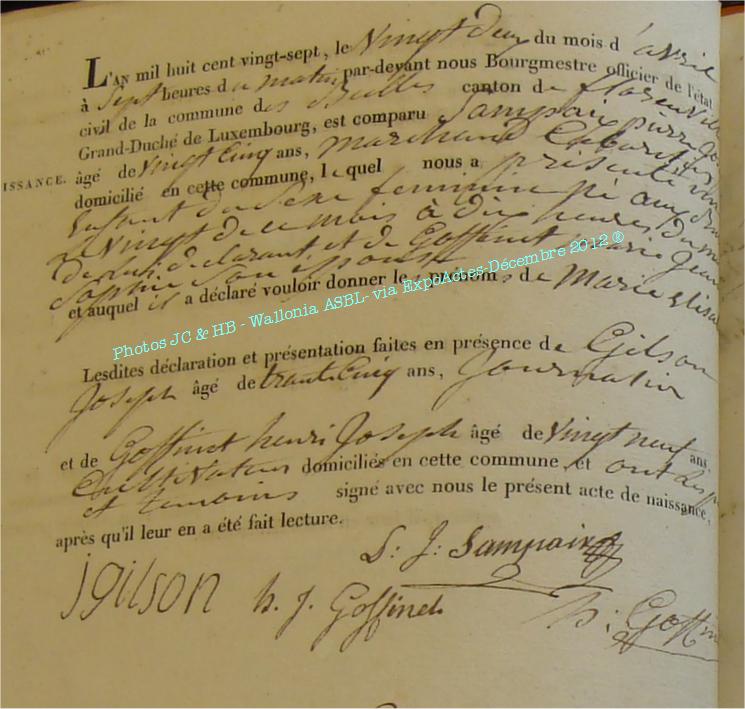 L'AN mil huit cent vingt-sept, le Vingt deux du mois d'avril
à Sept heures du matin par-devant nous Bourgmestre officier de l'état
civil de la commune des Bulles canton de florenville
Grand-Duché de Luxembourg, est comparu Sampaix pierre
ISSANCE.
âgé de Vingt Cinq ans, marchand Cabaretier
domicilié en cette commune, lequel nous a présenté un
Enfant du Sexe feminin né
le Vingt de ce mois à dix heures du
de lui déclarant et de Goffinet marie Jean
Sophie Son épouse
et auquel il a déclaré vouloir donner le prénoms de Marie Elisa
Photos JC & HB - Wallonia ASBL- via ExpoActes-Décembre 2012 ®
Lesdites déclaration et présentation faites en présence de Gilson
Joseph âgé de trante Cinq ans, Journalier
et de Goffinet henri Joseph âgé de Vingt neuf ans
Cultivateur domiciliés en cette commune et ont les
et temoins signé avec nous le présent acte de naissance,
après qu'il leur en a été fait lecture.
S: J: Sampaix
jgilson h. J. Goffinet h: Goffin